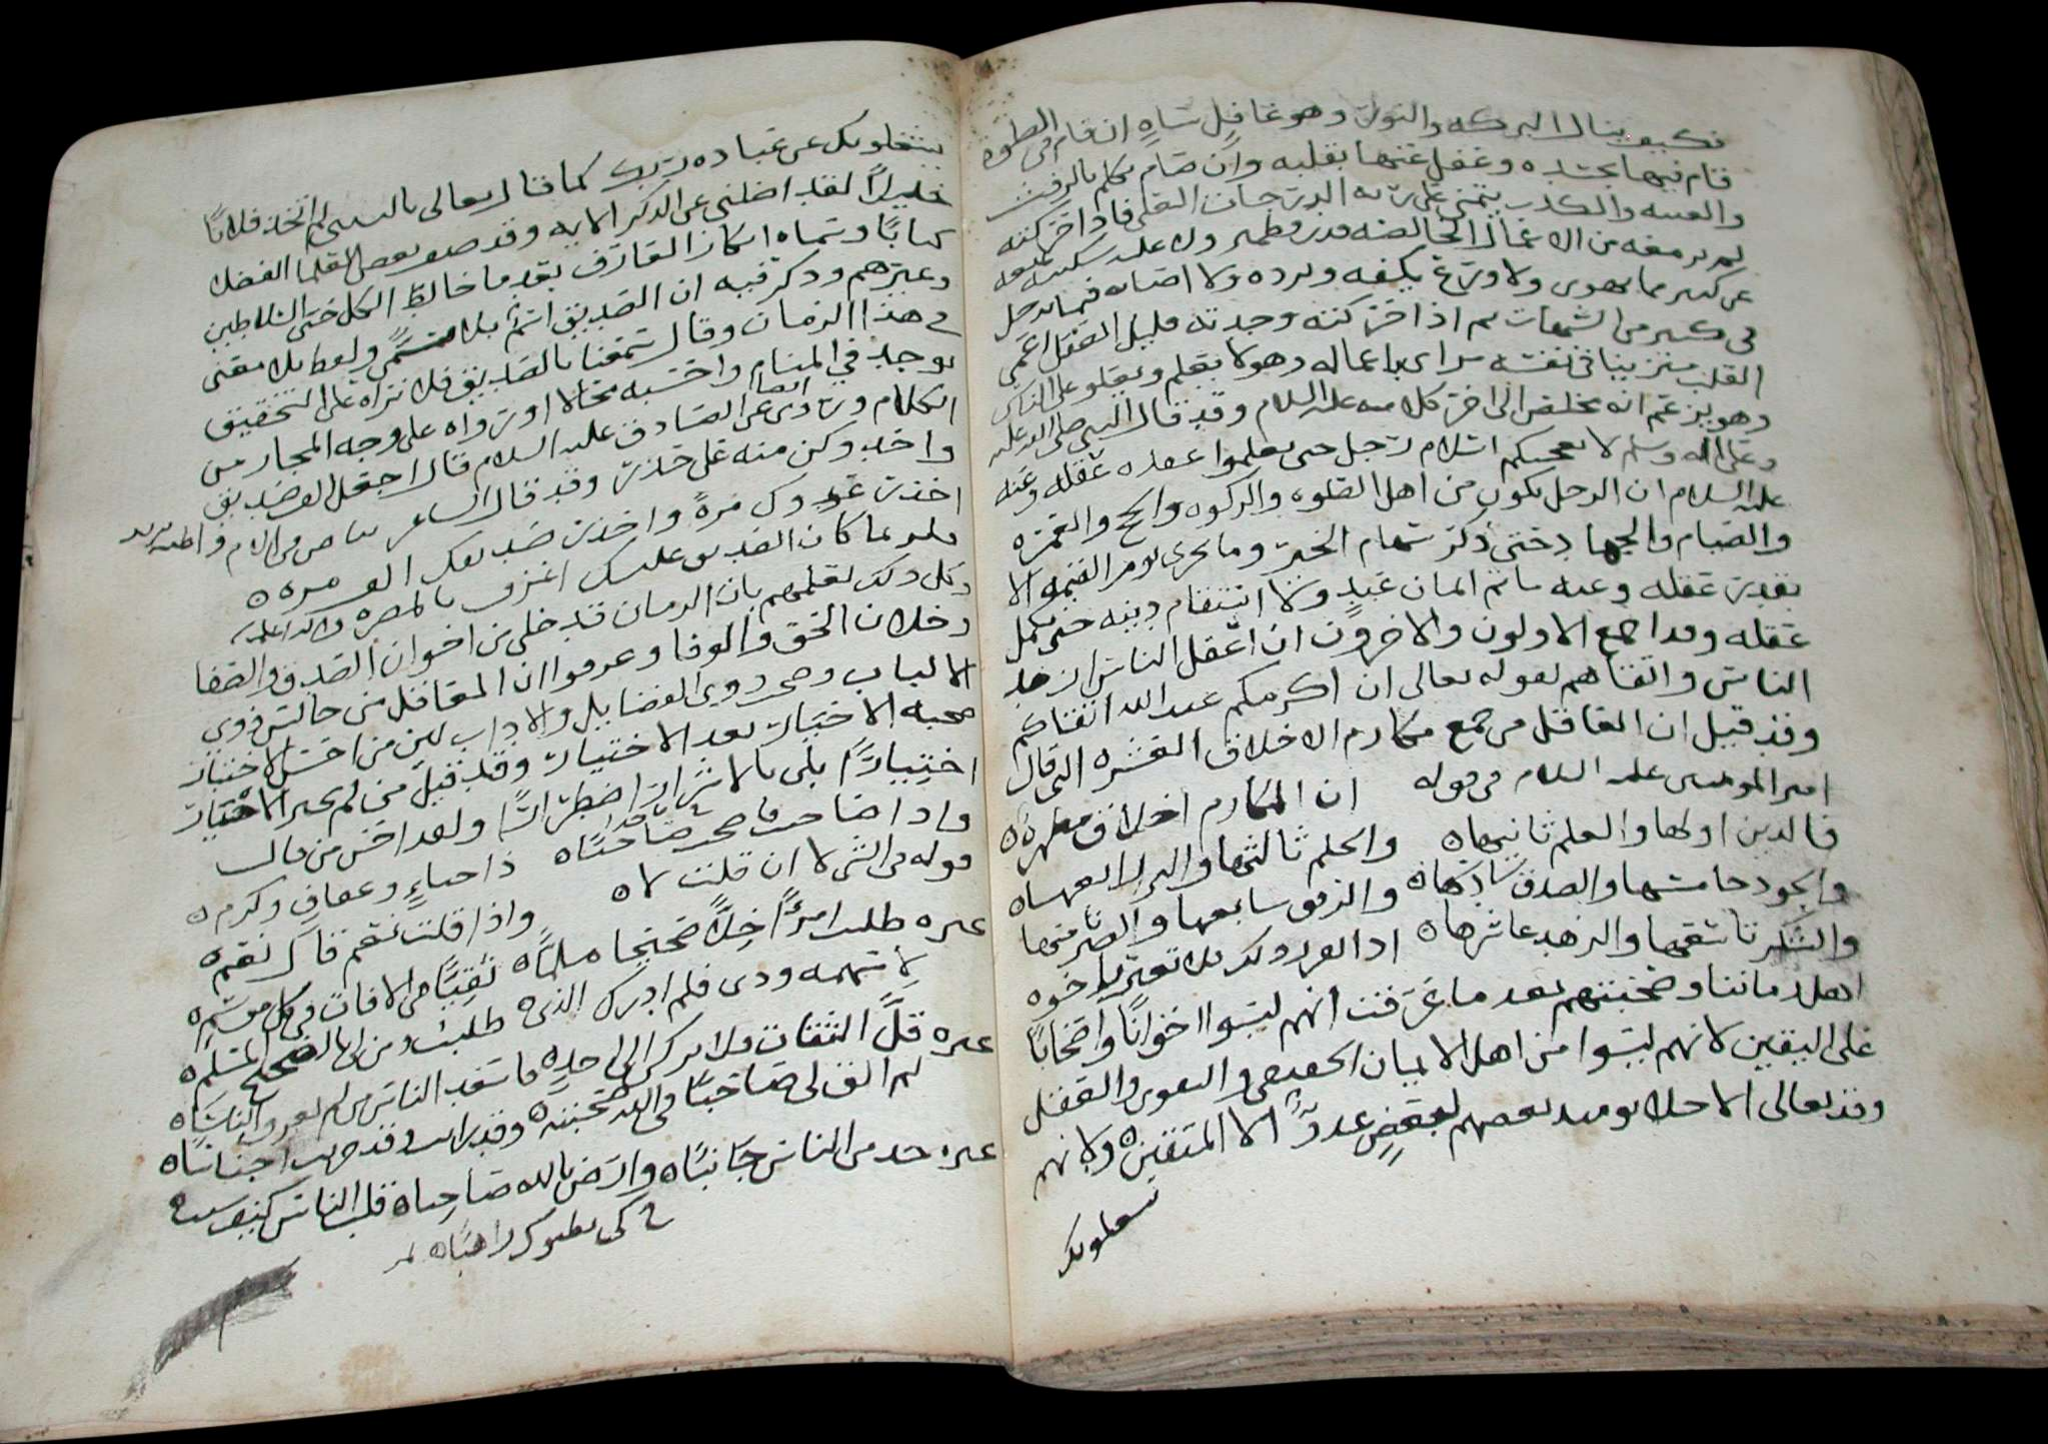 فكيف ينال البركه والثواب وهو غافل ساهٍ ان قام في الصلوه
قام فيها بجسده وغفل عنها بقلبه وان صام تكلم بالرفث
والغيبه والكذب يتمنى على ربه الدرجات العلى فاذا اختبرته
لم تر معه من الاعمال الخالصه قدر قطمير ولا عليه سكينه تمنعه
عن كثير مما يهوى ولا ورع يكفه ويرده ولا اصابه فيما يدخل
في كثير من الشبهات ثم اذا اختبرته وجدته قليل العقل اعمى
القلب متزينا في نفسه يراى باعماله وهو لا يعلم ويعلو على الناس
وهو يزعم انه مخلص الى اخر كلامه عليه السلام وقد قال النبي صلى الله عليه
وعلى اله وسلم لا يعجبكم اسلام رجل حتى تعلموا عقله وعنه
عليه السلام ان الرجل يكون من اهل الصلوه والزكوه والحج والعمره
والصيام والجهاد حتى ذكر سهام الخير وما يجزى يوم القيمه الا
بقدر عقله وعنه ما تم ايمان عبدٍ ولا استقام دينه حتى يكمل
عقله وقد اجمع الاولون والاخرون ان اعقل الناس ازهد
الناس واتقاهم لقوله تعالى ان اكرمكم عند الله اتقاكم
وقد قيل ان العاقل من جمع مكارم الاخلاق العشره التي قال
امير المومنين عليه السلام في قوله ان المكارم اخلاق مطهره
فالدين اولها والعلم ثانيها والحلم ثالثها والبر رابعها
والجود خامسها والصدق سادسها والرفق سابعها والصبر ثامنها
والشكر تاسعها والزهد عاشرها اذا تقرر ذلك فلا تغتر باخوه
اهل زماننا وصحبتهم بعد ما عرفت انهم ليسوا اخوانًا واصحابًا
على اليقين لانهم ليسوا من اهل الايمان الحقيقي والتقوى والعقل
وقد تعالى الاخلاء يومئذ بعضهم لبعضٍ عدوٌّ الا المتقين ولانهم
يشغلونك
يشغلونك عن عباده ربك كما قال تعالى يا ليتني لم اتخذ فلانًا
خليلًا لقد اضلني عن الذكر الايه وقد صنف بعض العلما الفضلا
كتابًا وسماه انكار المعارف بعد ما خالط الكل حتى السلاطين
وغيرهم وذكر فيه ان الصديق اسمٌ بلا مسمًى ولفظ بلا معنى
في هذا الزمان وقال سمعنا بالصديق فلا نراه على التحقيق
يوجد في المنام واحسبه محالا اوردواه على وجه المجاز من
الكلام وروى ايضا عن الصادق عليه السلام قال اجعل الف صديق
واحد وكن منه على حذر وقد قال الشاعر
احذر عدوك مرةً واحذر صديقك الف مره
فلربما كان الصديق عليك اعرف بالمضره
وكل ذلك لعلمهم بان الزمان قد خلى من اخوان الصدق والصفا
وخلان الحق والوفا وعرفوا ان العاقل من جالس ذوي
الالباب وصحب ذوي الفضايل والاداب لكن من احسن الاختبار
صحبه الاختيار بعد الاختبار وقد قيل من لم يخبر الاخيار
اختيارًا بلى بالاشرار اضطرارًا ولقد احسن من قال
واذا صاحبت فاصحب صاحبًا ذا حياءٍ وعفافٍ وكرم
قوله في الشي لا ان قلت لا واذا قلت نعم قال نعم
غيره طلبت امرًا خِلًّا صحيحا مسلمًا نقيًّا من الافات في كل موسم
لامنحه ودي فلم ادرك الذي طلبت ومن لي بالصحيح المسلم
غيره قلَّ الثقات فلا تركن الى احدٍ ما سعد الناس من لم يعرف الناسا
لم الق لي صاحبًا في الله صحبته وقد رايت وقد جربت اجناسا
غيره خذ من الناس جانبًا وارض بالله صاحبا قلب الناس كيف شيت
كي يظنوك راهبًا